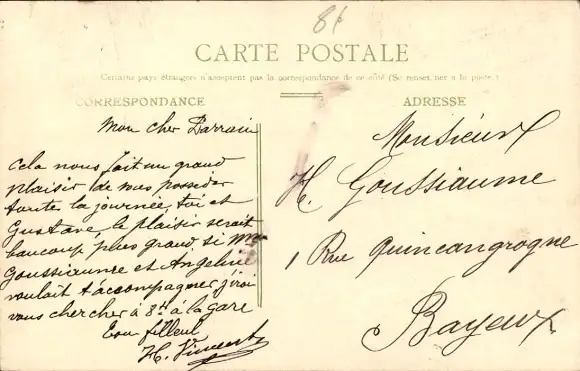 8f
CARTE POSTALE
Certains pays étrangers n'acceptent pas la correspondance de ce côté (Se renseigner à la poste.)
CORRESPONDANCE
ADRESSE
Mon cher Parrain
Cela nous fait un grand
plaisir de nous posseder
toute la journée, toi et
Gustave, le plaisir serait
beaucoup plus grand si Mme
Goussiaume et Angeline
voulait t'accompagner, j'irai
vous chercher à 8h à la gare
Ton filleul
H. Vincent
Monsieur
H. Goussiaume
1 Rue Quincangrogne
Bayeux